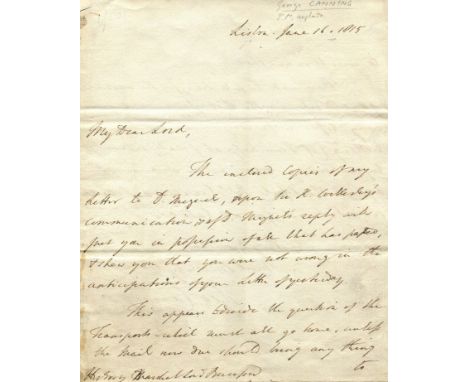 George CANNING
P.M.
Lisbon June 16. 1815
My Dear Lord,
The inclosed Copies of my
letter to D. Miguel, upon Sir H. Wellesley's
communication & of D. Miguel's reply will
put you in possession of all that has passed,
& shew you that you were not wrong in the
anticipations of your letter of yesterday.
This appears to decide the question of the
Transports which must all go home, unless
the Mail now due should bring any thing
to
His Excy Marshal Lord Beresford